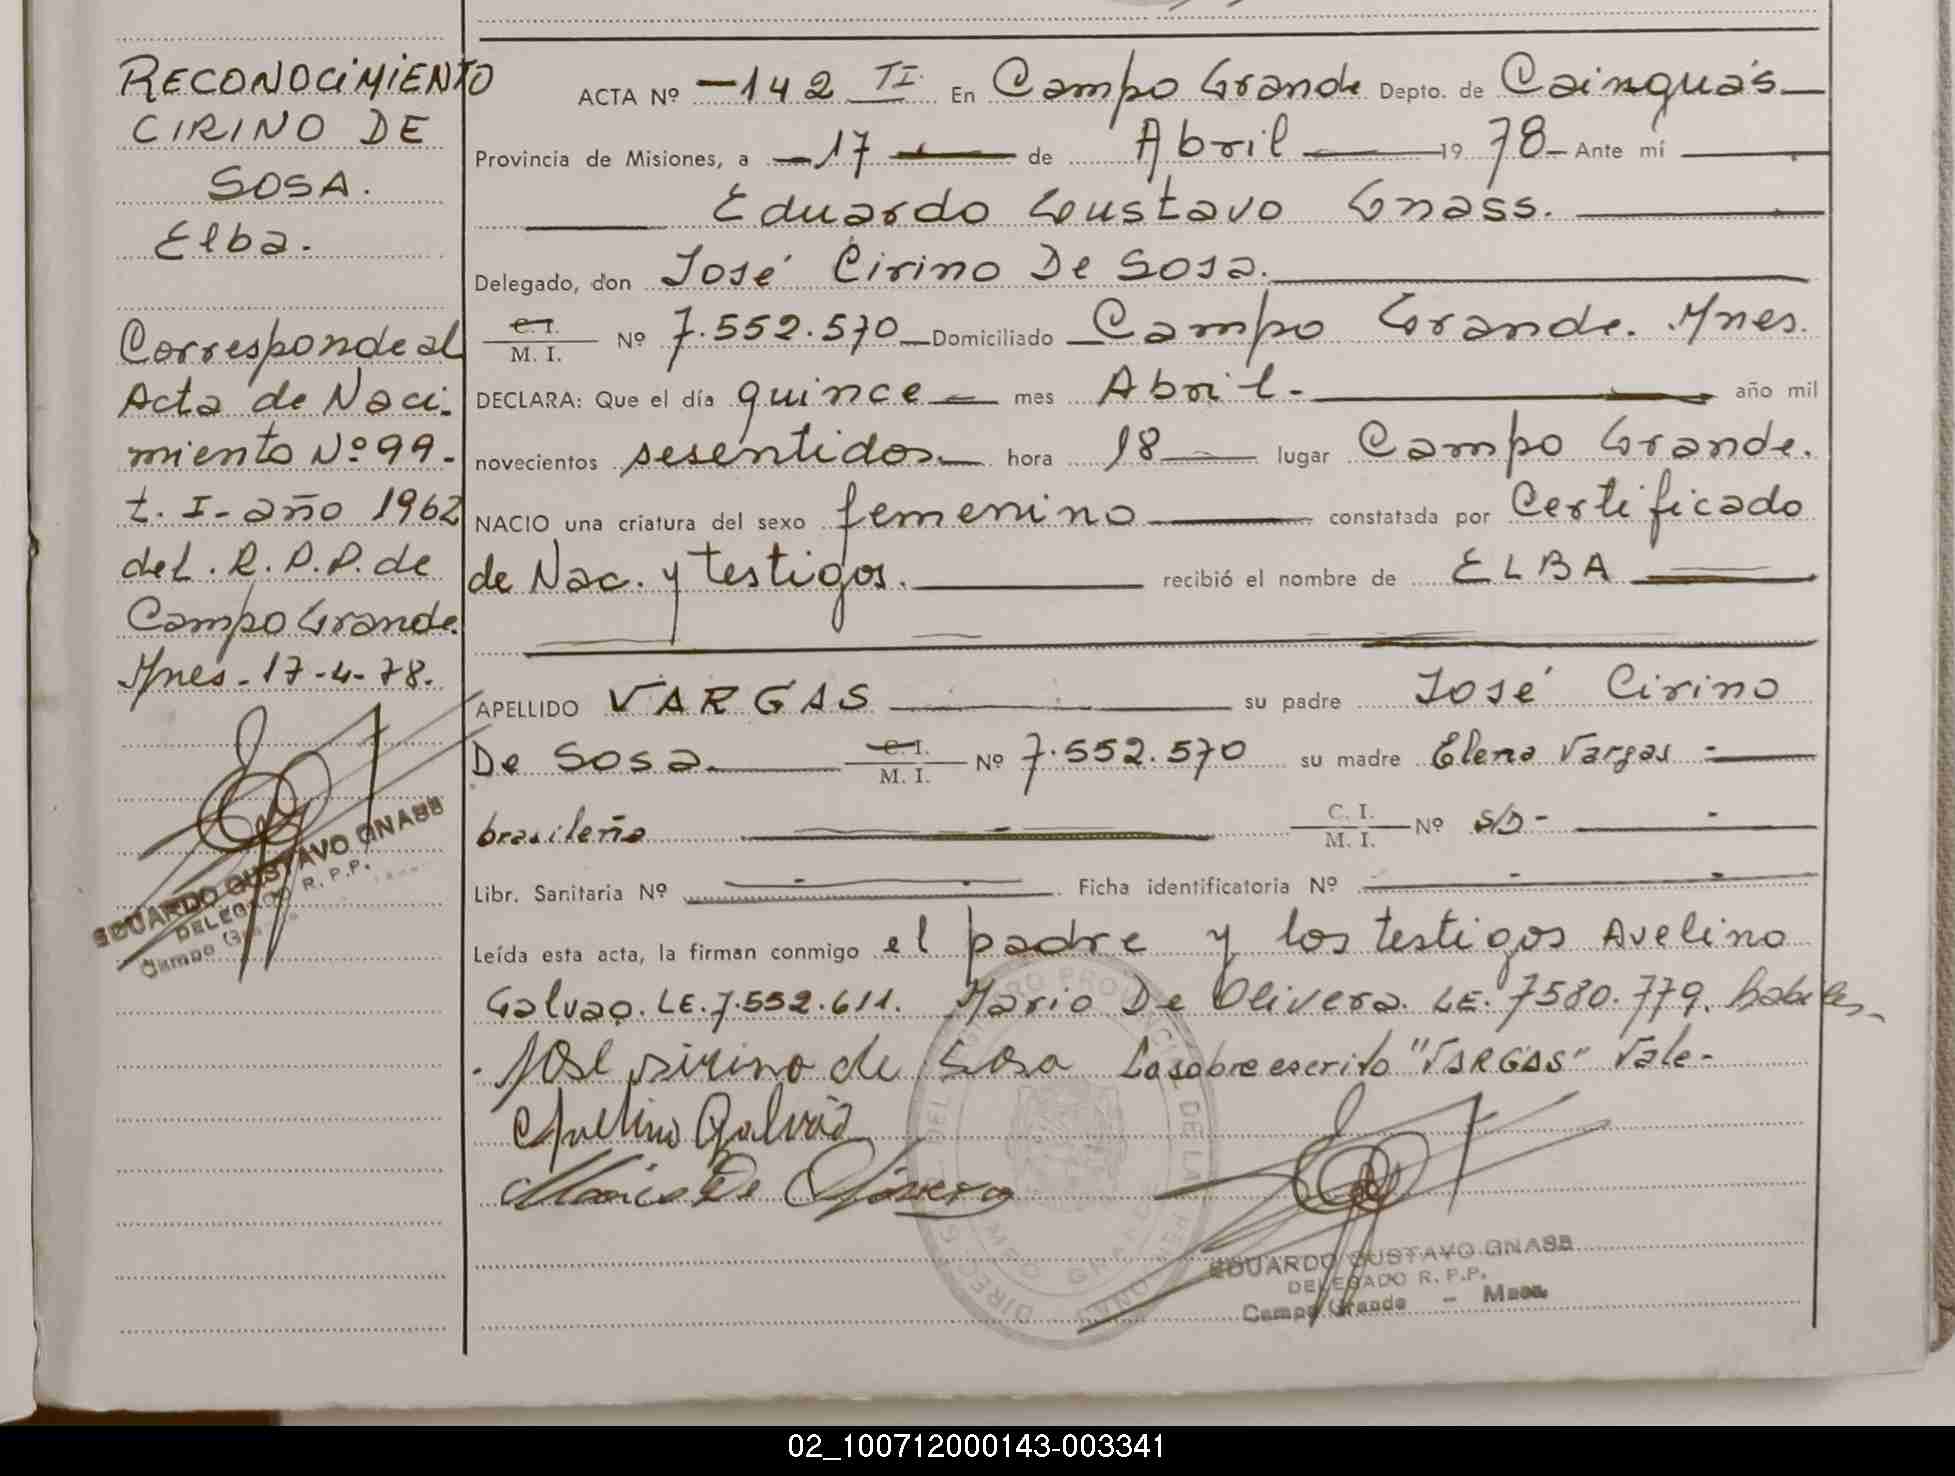 RECONOCIMIENTO
CIRINO DE
SOSA.
Elba.
Corresponde al
Acta de Naci-
miento Nº 99-
t. I- año 1962
del. R. P. P. de
Campo Grande.
Mnes- 17-4-78.
EDUARDO GUSTAVO GNASS
DELEGADO R. P. P.
Campo
ACTA Nº -142 TI. En Campo Grande Depto. de Cainguás
Provincia de Misiones, a -17 de Abril 19 78- Ante mí
Eduardo Gustavo Gnass.
Delegado, don José Cirino De Sosa.
C. I.
M. I. Nº 7.552.570 Domiciliado Campo Grande. Mnes.
DECLARA: Que el día quince mes Abril- año mil
novecientos sesentidos hora 18 lugar Campo Grande.
NACIO una criatura del sexo femenino constatada por Certificado
de Nac. y testigos. recibió el nombre de ELBA
APELLIDO VARGAS su padre José Cirino
De Sosa. C. I. M. I. Nº 7.552.570 su madre Elena Vargas -
brasileña C. I. M. I. Nº S/D-
Libr. Sanitaria Nº Ficha identificatoria Nº
Leída esta acta, la firman conmigo el padre y los testigos Avelino
Galvao. LE. 7.552.611. Mario De Olivera. LE. 7580.779. habiles.
José sirino de Sosa Lo sobre escrito "VARGAS" Vale-
Avelino Galvão
Mario De Olivera
EDUARDO GUSTAVO GNASS
DELEGADO R. P. P.
Campo Grande - Mnes.
02_100712000143-003341